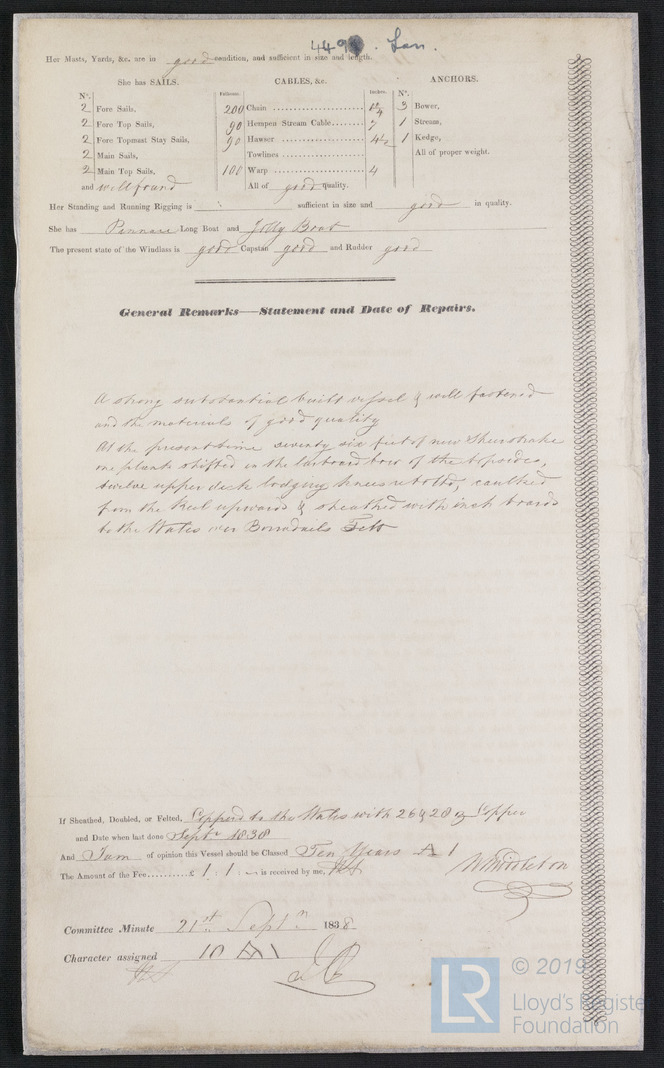 449 . Lon.
Her Masts, Yards, &c. are in good condition, and sufficient in size and length.
She has SAILS. CABLES, &c. ANCHORS.
N°. Fathoms. Inches. N°.
2 Fore Sails, 200 Chain 1 3 Bower,
2 Fore Top Sails, 90 Hempen Stream Cable 7 1 Stream,
2 Fore Topmast Stay Sails, 90 Hawser 4½ 1 Kedge,
2 Main Sails, Towlines All of proper weight.
2 Main Top Sails, 100 Warp 4
and well found All of good quality.
Her Standing and Running Rigging is sufficient in size and good in quality.
She has Pinnace Long Boat and Jolly Boat
The present state of the Windlass is good Capstan good and Rudder good
General Remarks—Statement and Date of Repairs.
A strong substantial built vessel & well fastened
and the materials of good quality
At the present time seventy six feet of new Sheerstrake
one plank shifted in the larboard bow of the topsides,
twelve upper deck lodging knees rebolted, caulked
from the Keel upwards & sheathed with inch boards
to the Wales over Borradails Felt
If Sheathed, Doubled, or Felted, Coppered to the Wales with 26 & 28 oz Copper
and Date when last done Sept 1838
And I am of opinion this Vessel should be Classed Ten Years A 1
The Amount of the Fee £ 1 : 1 : - is received by me, W Middleton
Committee Minute 21st Septr 1838
Character assigned 10 A 1
LR © 2019
Lloyd's Register
Foundation